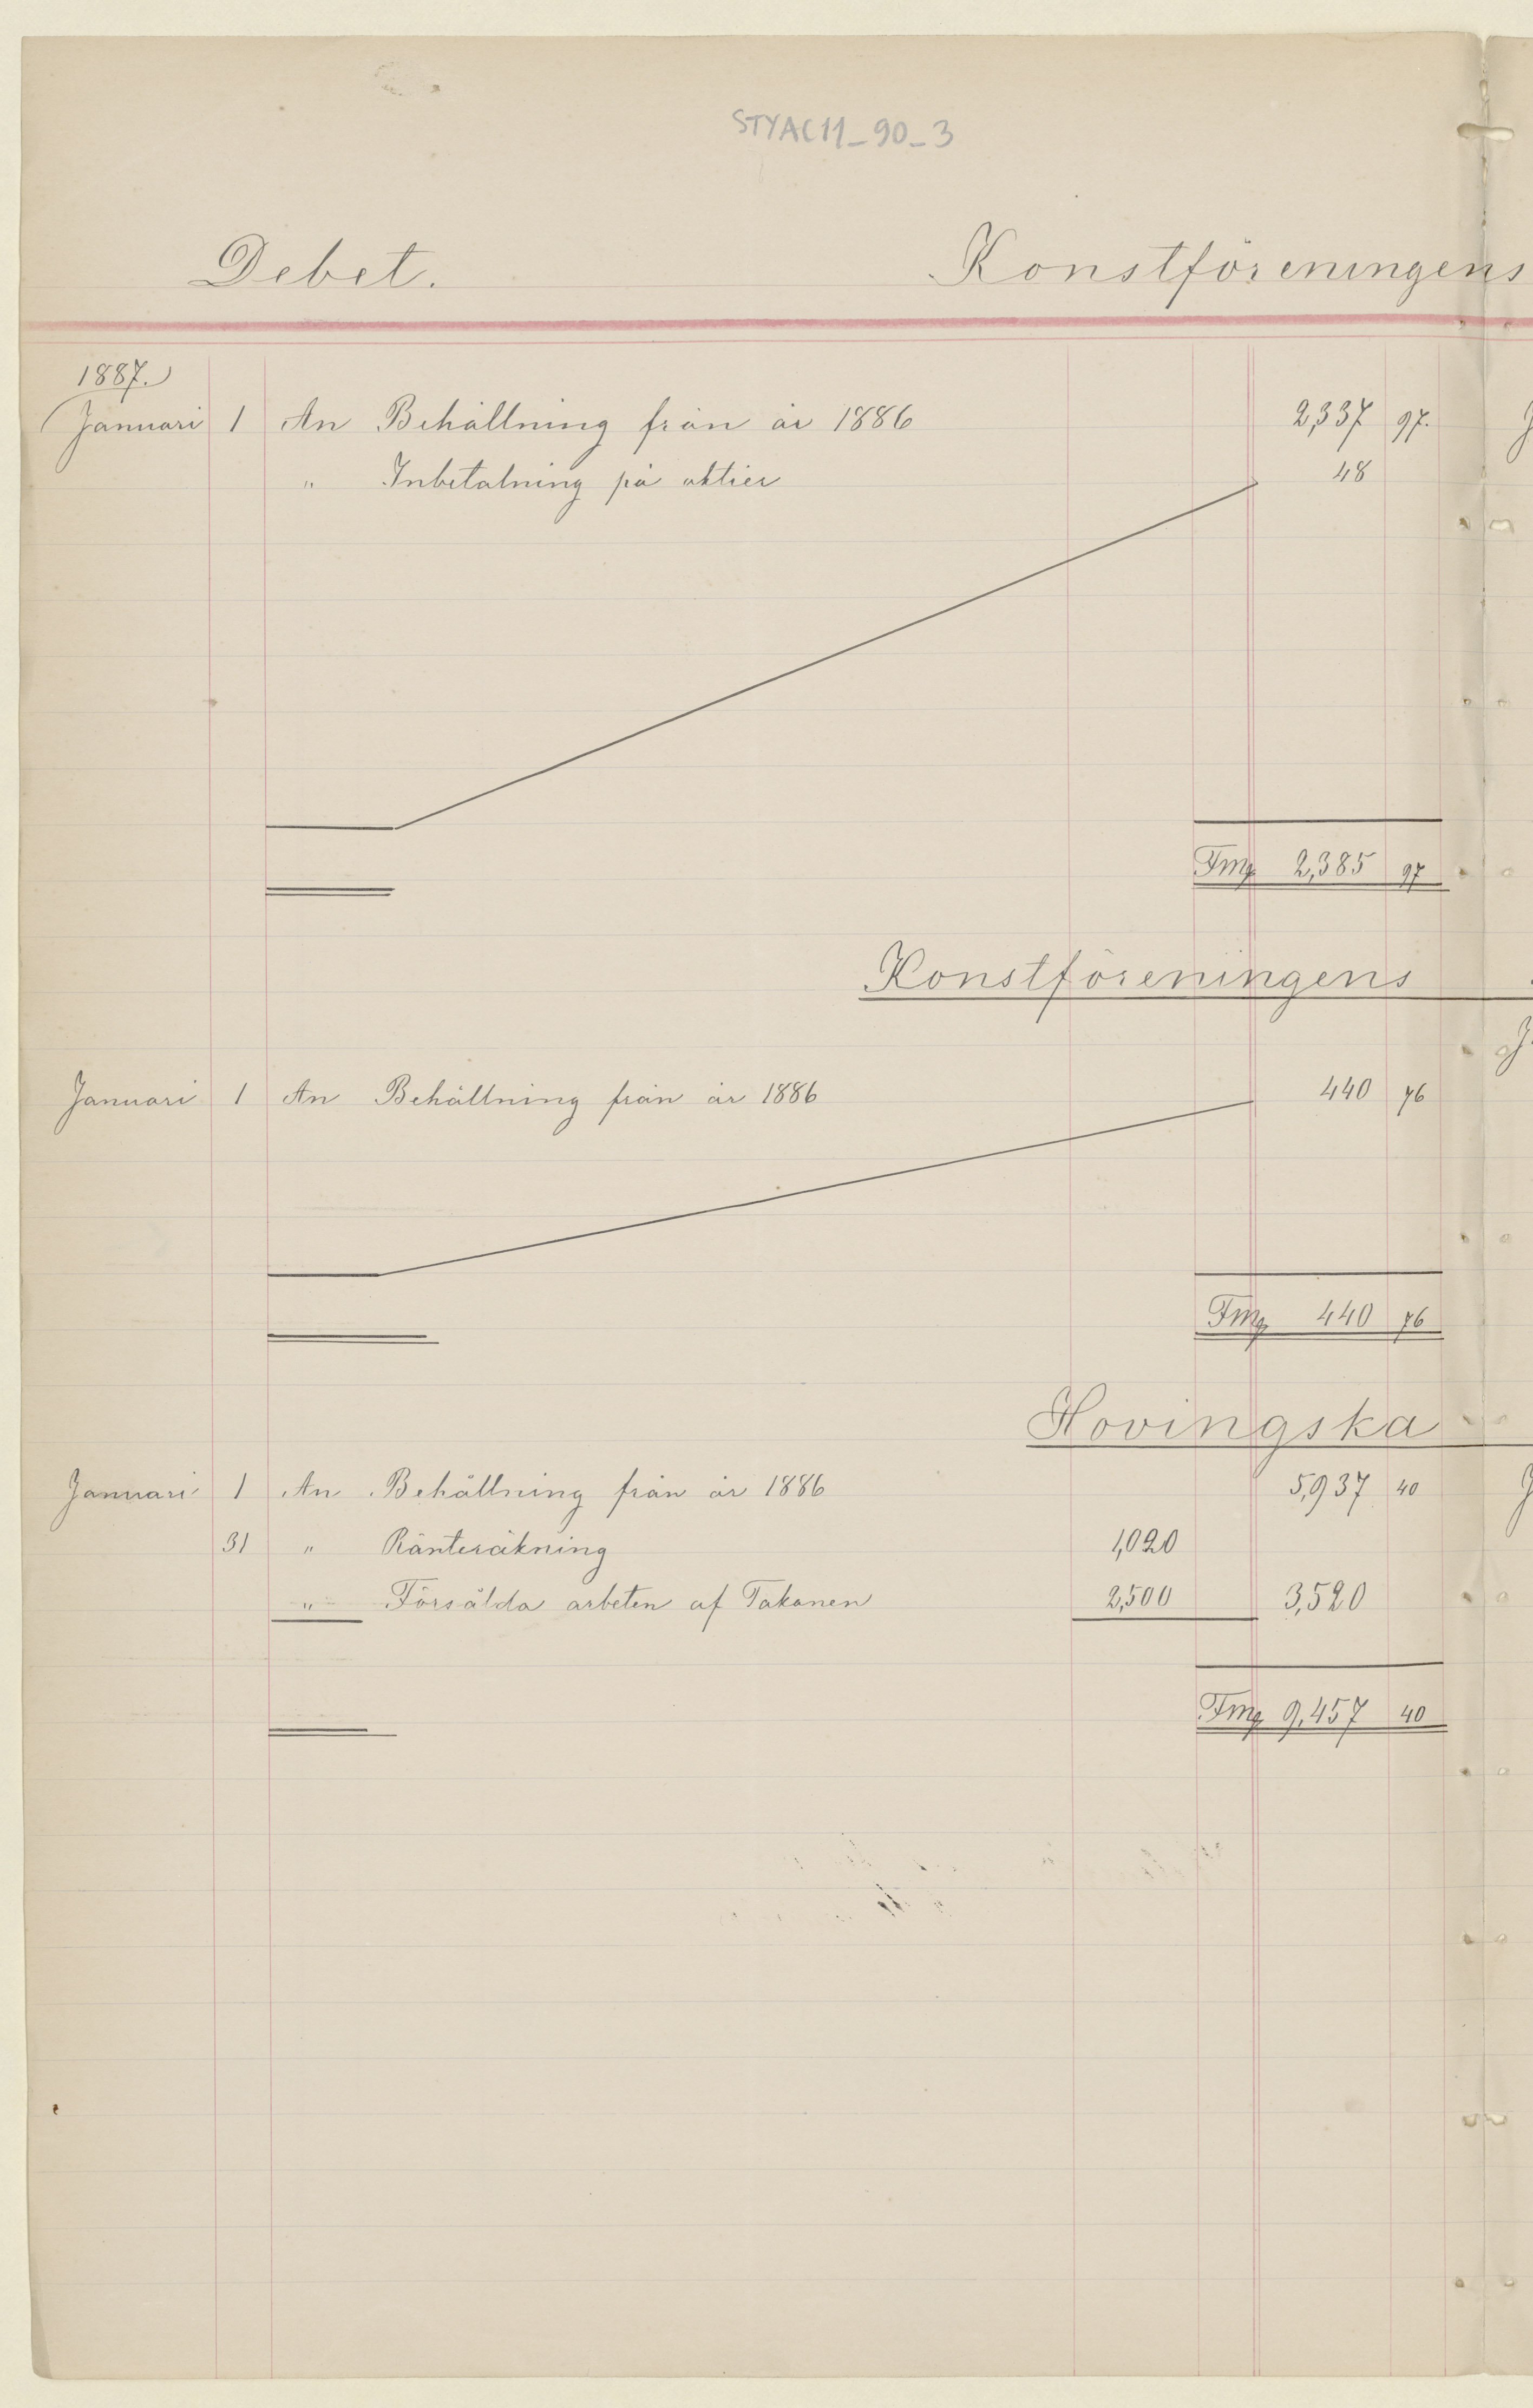 STYAC11_90_3
Debet. Konstföreningens
1887.
Januari 1 An Behållning från år 1886 2,337 97.
" Inbetalning på aktier 48
Fmg 2,385 97
Konstföreningens
Januari 1 An Behållning från år 1886 440 76
Fmg 440 76
Hovingska
Januari 1 An Behållning från år 1886 5,937 40
31 " Ränteräkning 1,020
" Försålda arbeten af Takanen 2,500 3,520
Fmg 9,457 40